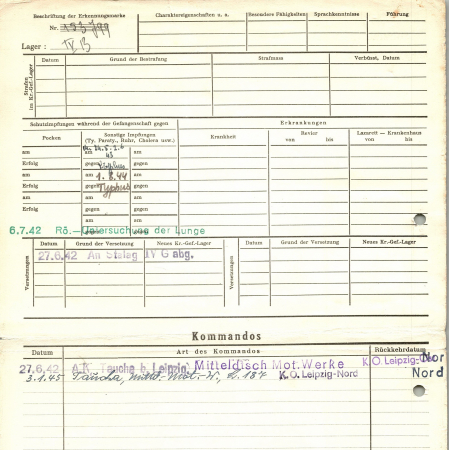 Beschriftung der Erkennungsmarke
Nr.
Lager: IV B
Charaktereigenschaften u. a.
Besondere Fähigkeiten
Sprachkenntnisse
Führung
Strafen im Kr.-Gef.-Lager
Datum
Grund der Bestrafung
Strafmaß
Verbüßt, Datum
Schutzimpfungen während der Gefangenschaft gegen
Erkrankungen
Pocken
Sonstige Impfungen
(Ty. Paraty., Ruhr, Cholera usw.)
Krankheit
Revier
von bis
Lazarett — Krankenhaus
von bis
am am am
Erfolg gegen gegen
am am 1.8.44 am
Erfolg gegen Typhus gegen
am am am
Erfolg gegen gegen
am am
gegen gegen
6.7.42 Rö.—Untersuchung der Lunge
Versetzungen
Datum
Grund der Versetzung
Neues Kr.-Gef.-Lager
Versetzungen
Datum
Grund der Versetzung
Neues Kr.-Gef.-Lager
27.6.42 An Stalag IV G abg.
Kommandos
Datum
Art des Kommandos
Rückkehrdatum
27.6.42 A.K. Taucha b. Leipzig, Mitteldtsch Mot. Werke K.O. Leipzig-Nor
3.1.45 Taucha, K.O. Leipzig-Nord Nord